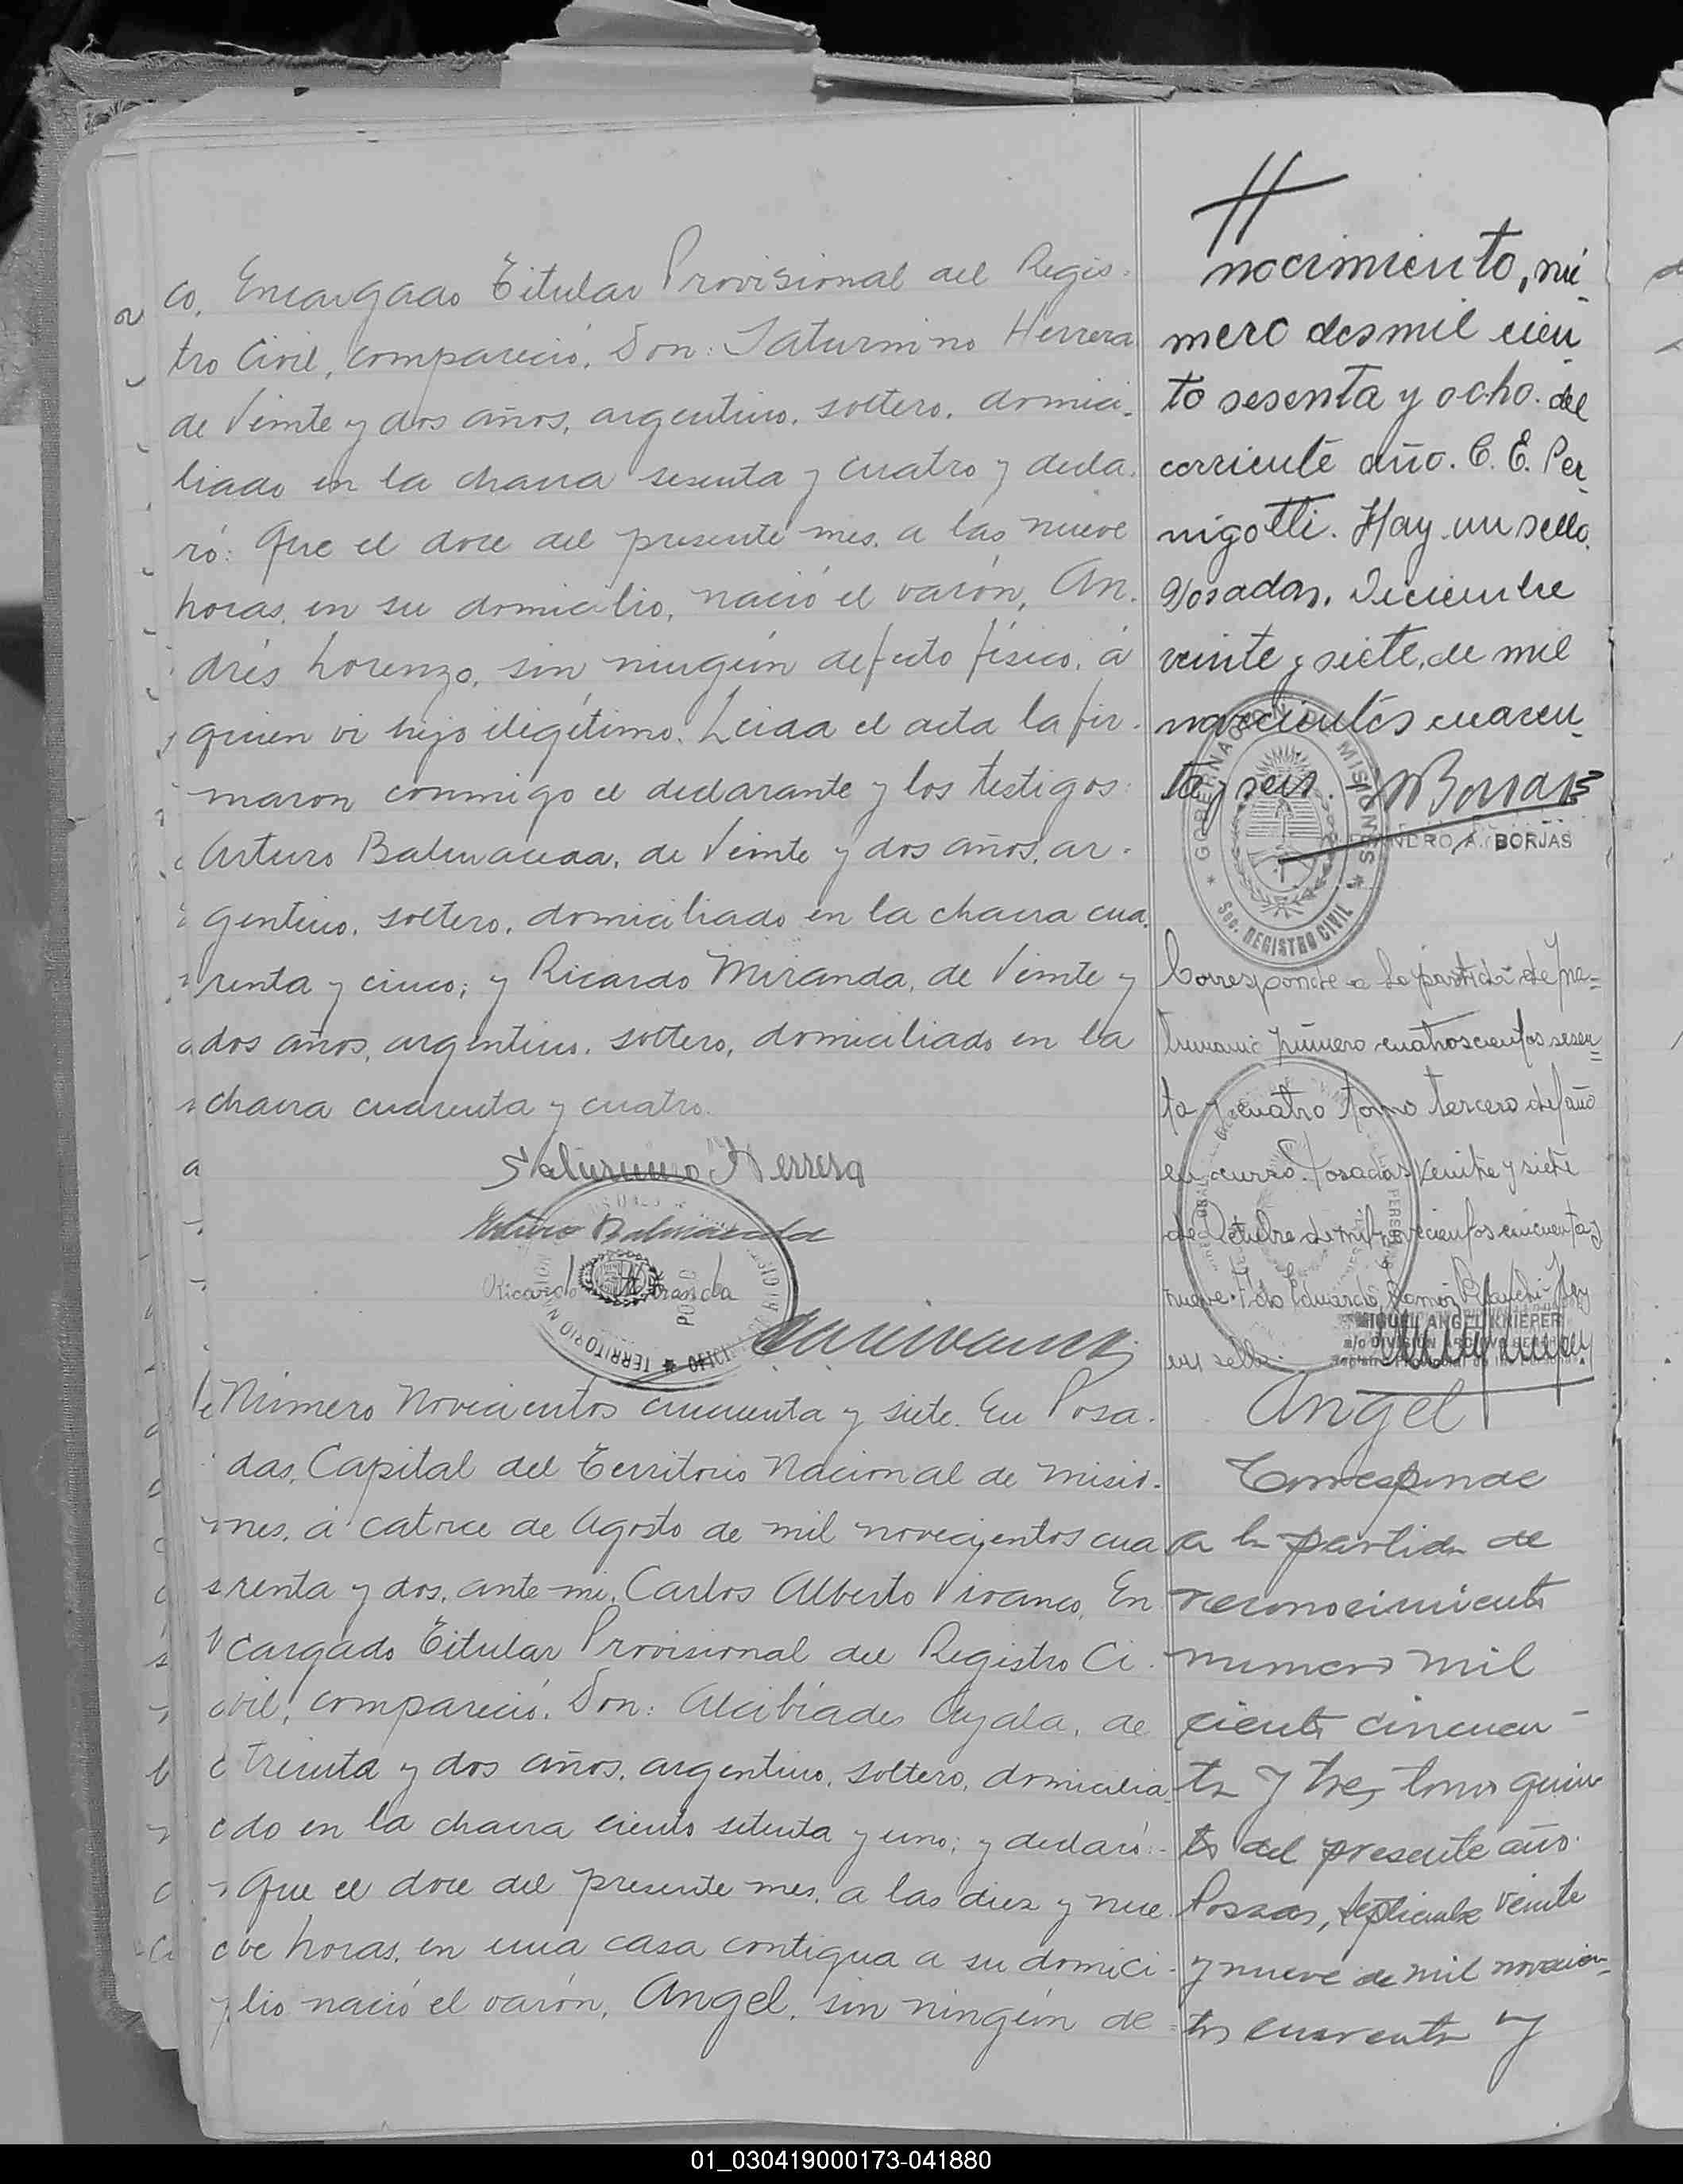 co, Encargado Titular Provisional del Regis-
tro Civil, compareció, Don: Saturnino Herrera
de Veinte y dos años, argentino, soltero, domici-
liado en la chacra sesenta y cuatro y decla-
ró: Que el doce del presente mes, a las nueve
horas, en su domicilio, nació el varón, An-
drés Lorenzo, sin ningún defecto físico, á
quien vi hijo ilegítimo. Leida el acta la fir-
maron conmigo el declarante y los testigos:
Arturo Balmaceda, de Veinte y dos años, ar-
gentino, soltero, domiciliado en la chacra cua-
renta y cinco; y Ricardo Miranda, de Veinte y
dos años, argentino, soltero, domiciliado en la
chacra cuarenta y cuatro.
Saturnino Herrera
Arturo Balmaceda
Ricardo Miranda
Número Novecientos cincuenta y siete. En Posa-
das, Capital del Territorio Nacional de Misio-
nes, á catorce de Agosto de mil novecientos cua
renta y dos, ante mi, Carlos Alberto Vivanco, En
cargado Titular Provisional del Registro Ci-
vil, compareció, Don: Alcibíades Ayala, de
treinta y dos años, argentino, soltero, domicilia-
do en la chacra ciento setenta y uno; y declaró:-
Que el doce del presente mes, a las diez y nue
ve horas, en una casa contigua a su domici-
lio nació el varón, Angel, sin ningún de-
nocimiento, nú-
mero dos mil cien-
to sesenta y ocho del
corriente año. C. E. Per-
nigotti. Hay un sello.
Posadas, Diciembre
veinte y siete, de mil
novecientos cuaren-
ta y seis.
GOBERNACION MISIONES
Sec. REGISTRO CIVIL
A. BORJAS
Corresponde a la partida de ma-
trimonio número cuatroscientos sesen-
ta y cuatro tomo tercero del año
en curso. Posadas, veinte y siete
de Octubre de mil novecientos cincuenta y
nueve. Fdo Eduardo Ramón Hay
un sello.
MIGUEL ANGEL KNIEPER
Angel
Corresponde
a la partida de
reconocimiento
numero mil
ciento cincuen-
ta y tres tomo quin
to del presente año.
Posadas, septiembre veinte
y nueve de mil novecien-
tos cuarenta y
01_030419000173-041880